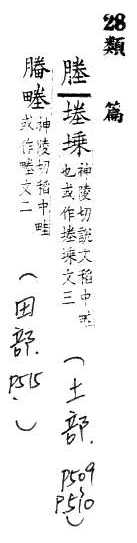 28
類篇
塍堘塖神陵切說文稻中畦
也或作堘塖文三
(土部. P509
P510)
神陵切稻中畦
或作文二
(田部. P515.)